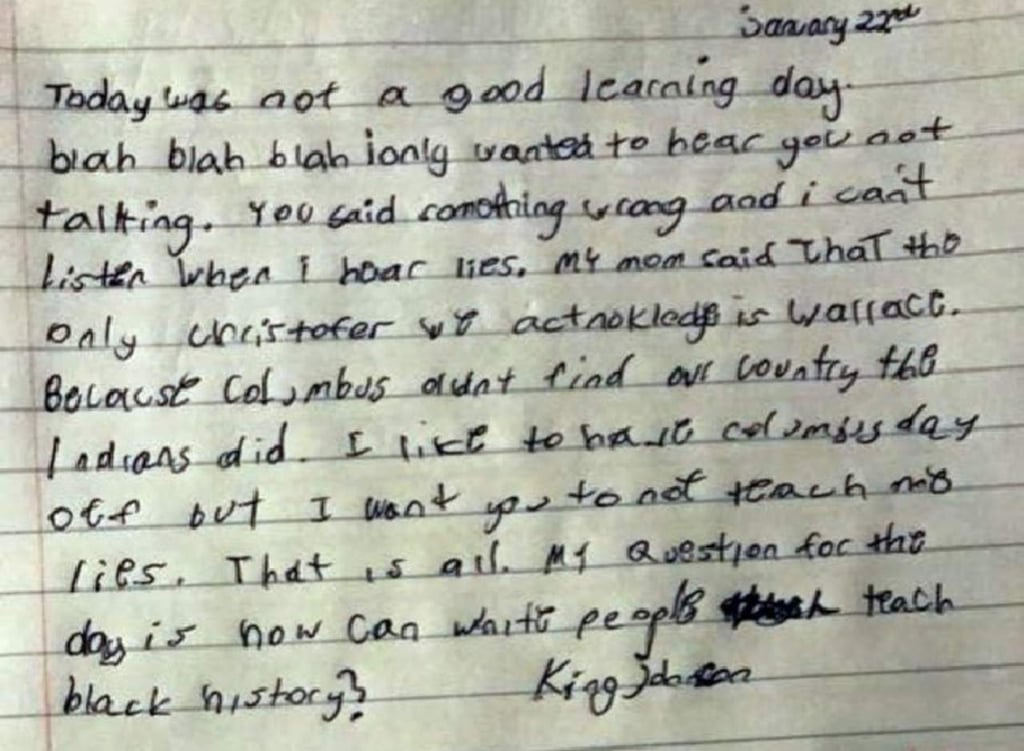 January 22nd
Today was not a good learning day.
blah blah blah ionly wanted to hear you not
talking. You said something wrong and i can't
Listen when i hear lies. My mom said That the
only christofer we acknokledge is Wallace.
Because Columbus didnt find our country the
Indians did. I like to have columbus day
off but I want you to not teach me
lies. That is all. My Question for the
day is how can white people teach
black history?
King Johnson